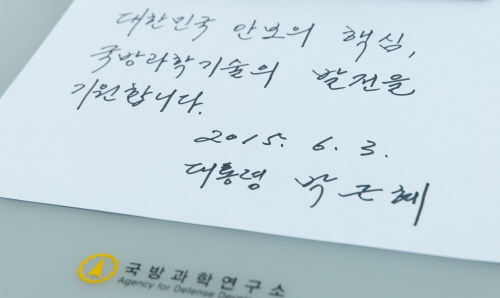 대한민국 안보의 핵심,
국방과학기술의 발전을
기원합니다.
2015. 6. 3.
대통령 박근혜
국방과학연구소
Agency for Defense